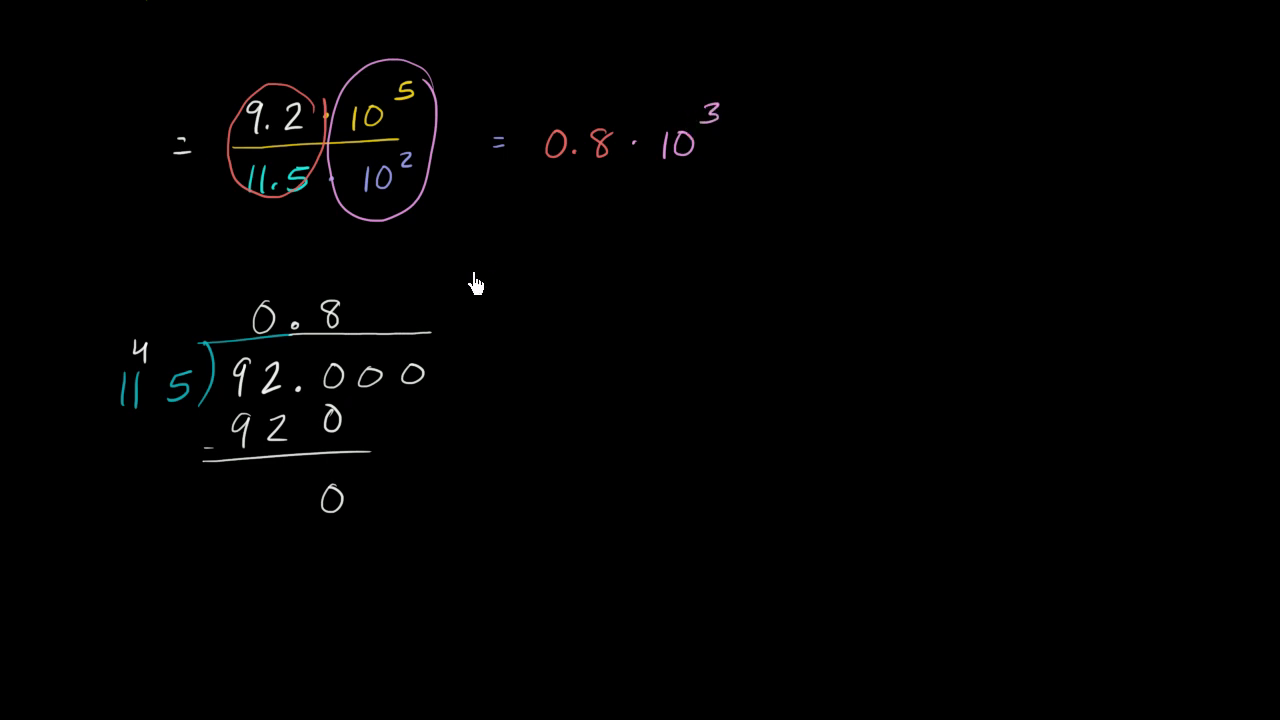 = 9.2 · 10^5 / 11.5 · 10^2 = 0.8 · 10^3
0.8
4
115)92.000
- 92 0
0